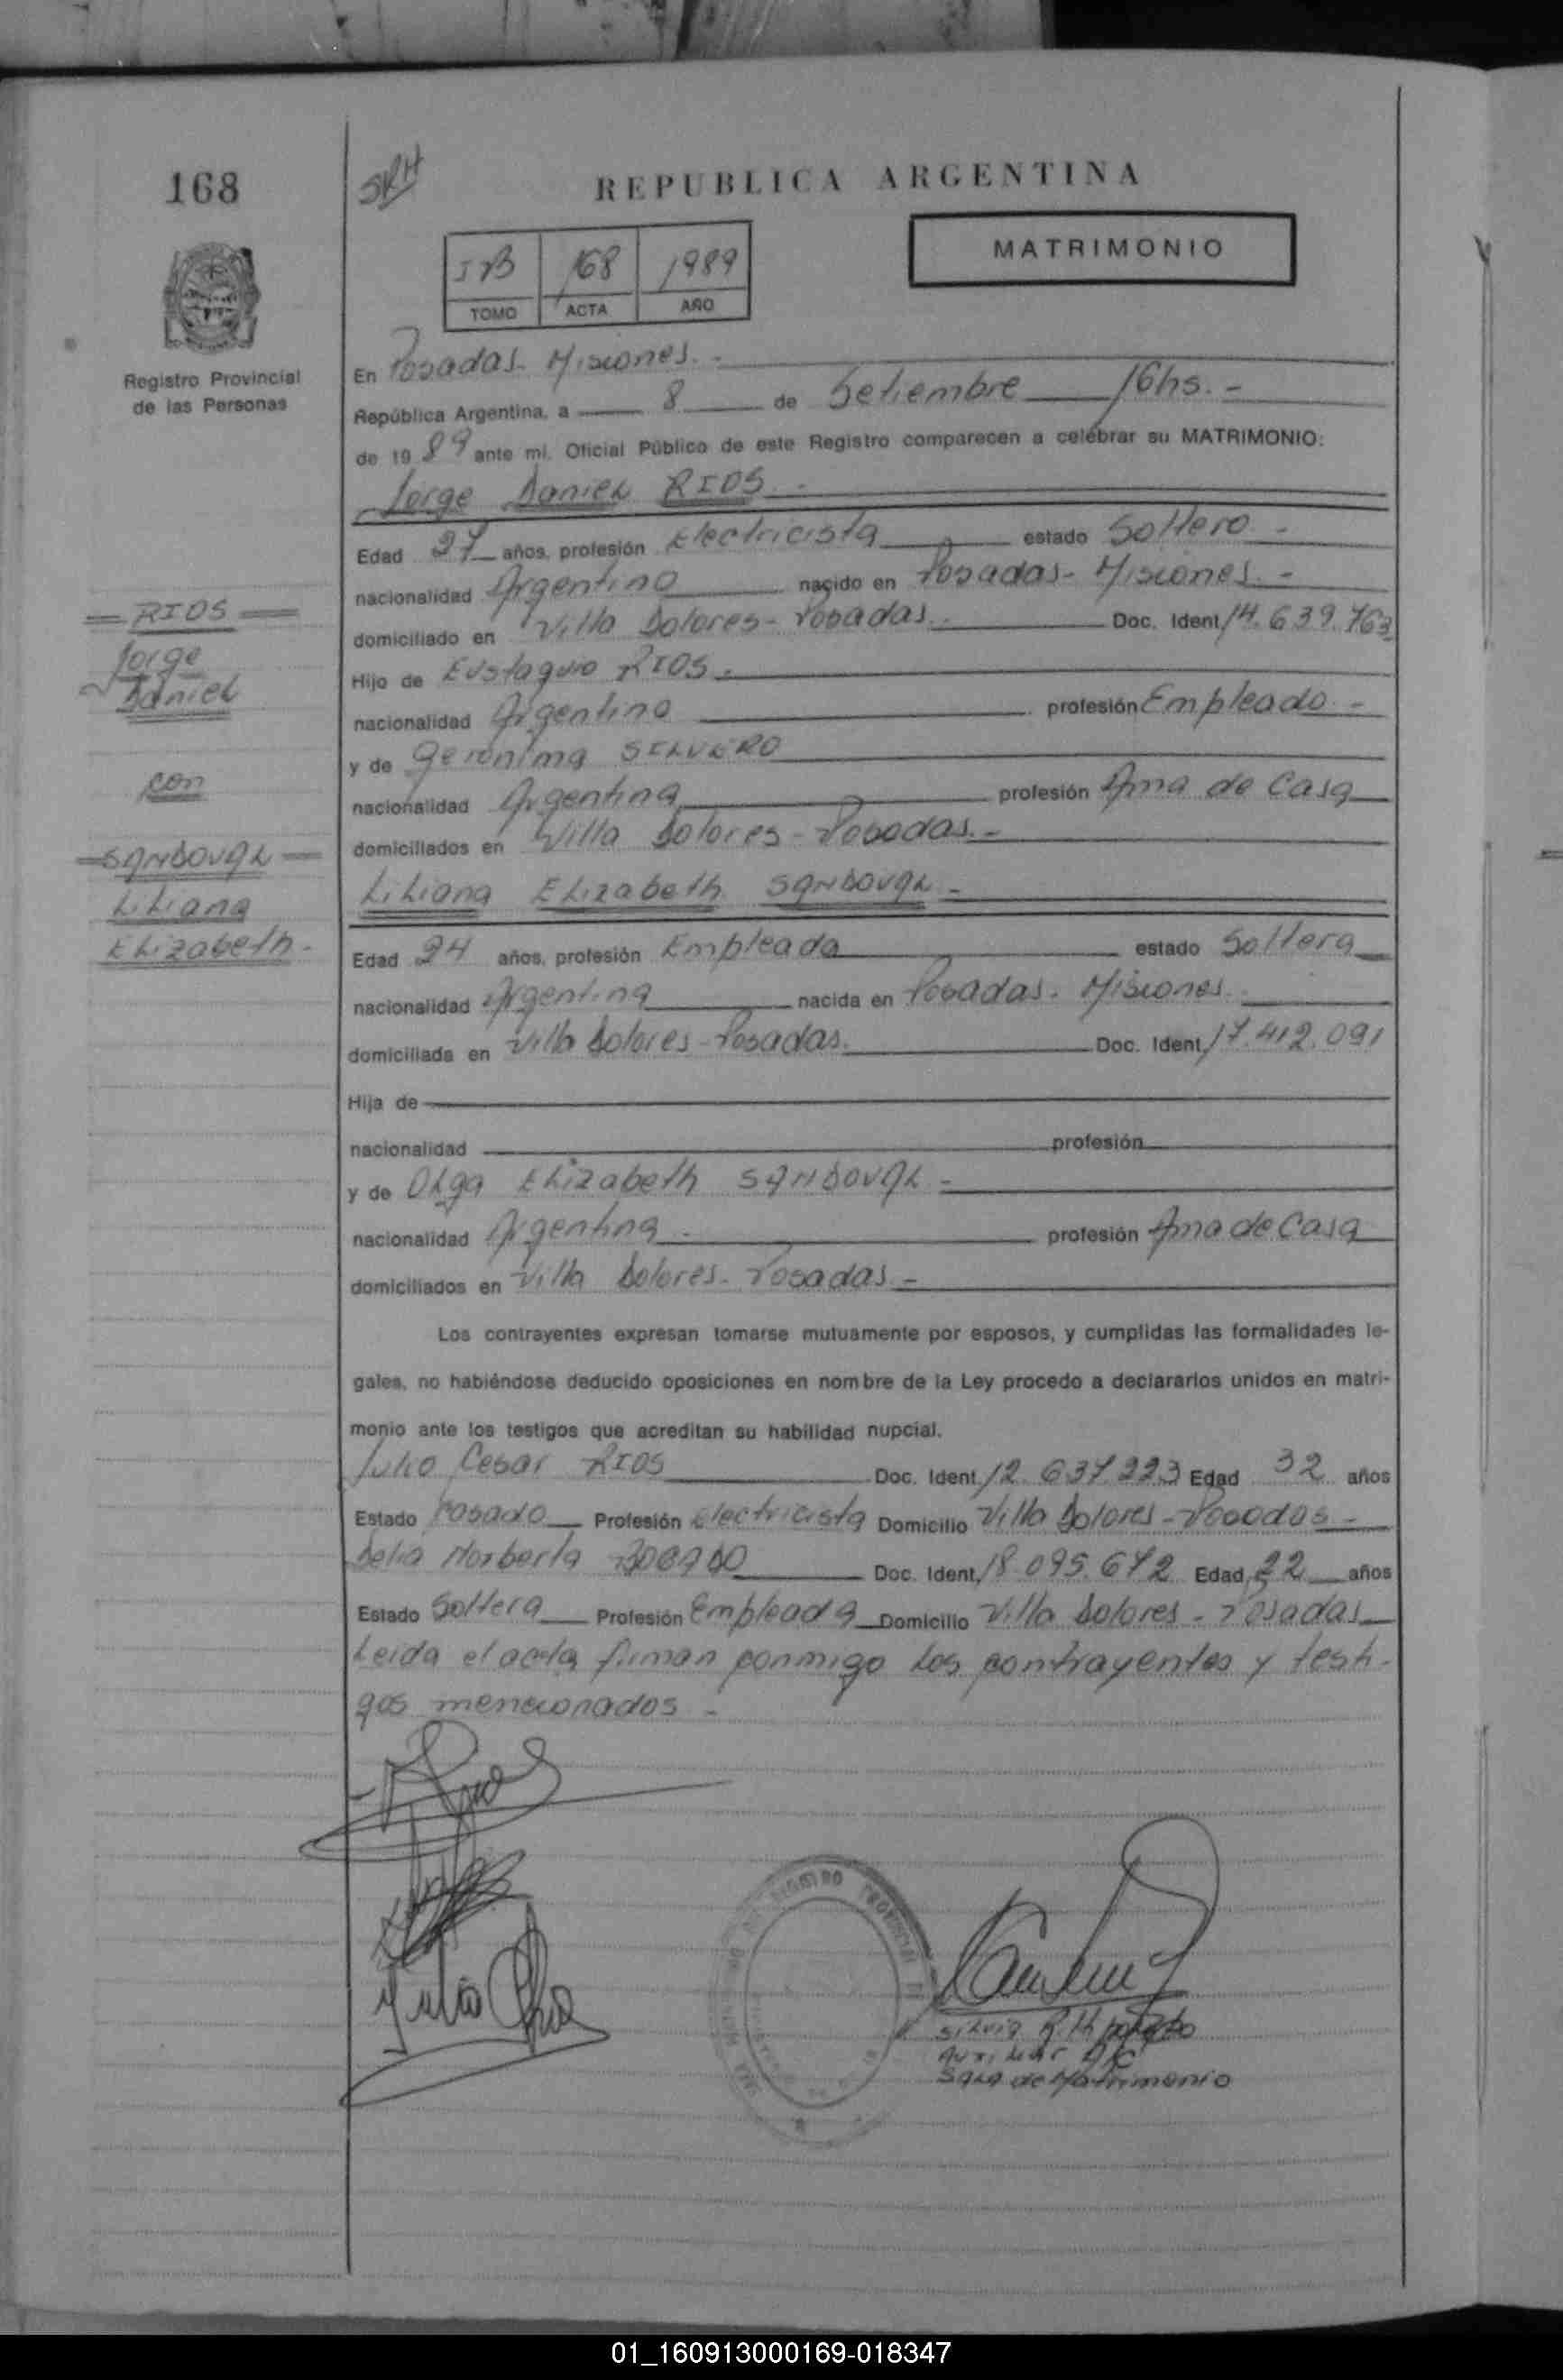 168
SRH
REPUBLICA ARGENTINA
MATRIMONIO
168 1989
TOMO ACTA AÑO
Registro Provincial
de las Personas
En Posadas - Misiones. -
República Argentina, a 8 de Setiembre 16hs. -
de 1989 ante mi, Oficial Público de este Registro comparecen a celebrar su MATRIMONIO:
Jorge Daniel RIOS -
Edad 27 años, profesión Electricista estado Soltero -
nacionalidad Argentino nacido en Posadas - Misiones. -
domiciliado en Villa Dolores - Posadas. Doc. Ident. 14.639.763
Hijo de Eustaquio RIOS.
nacionalidad Argentino profesión Empleado -
y de Gerónima SILVERO
nacionalidad Argentina profesión Ama de Casa
domiciliados en Villa Dolores - Posadas. -
= RIOS =
Jorge
Daniel
con
= SANDOVAL =
Liliana
Elizabeth. -
Liliana Elizabeth SANDOVAL -
Edad 24 años, profesión Empleada estado Soltera
nacionalidad Argentina nacida en Posadas - Misiones.
domiciliada en Villa Dolores - Posadas. Doc. Ident. 17.412.091
Hija de
nacionalidad profesión
y de Olga Elizabeth SANDOVAL -
nacionalidad Argentina - profesión Ama de Casa
domiciliados en Villa Dolores - Posadas -
Los contrayentes expresan tomarse mutuamente por esposos, y cumplidas las formalidades le-
gales, no habiéndose deducido oposiciones en nombre de la Ley procedo a declararlos unidos en matri-
monio ante los testigos que acreditan su habilidad nupcial.
Julio Cesar RIOS Doc. Ident. 12.637.223 Edad 32 años
Estado Casado Profesión Electricista Domicilio Villa Dolores - Posadas -
Delia Norberta Doc. Ident. 18.095.672 Edad 22 años
Estado Soltera Profesión Empleada Domicilio Villa Dolores - Posadas
Leida el acta firman conmigo los contrayentes y testi-
gos mencionados -
REGISTRO PROVINCIAL DE
Silvia R. H.
Auxiliar A/C
Sala de Matrimonio
01_160913000169-018347